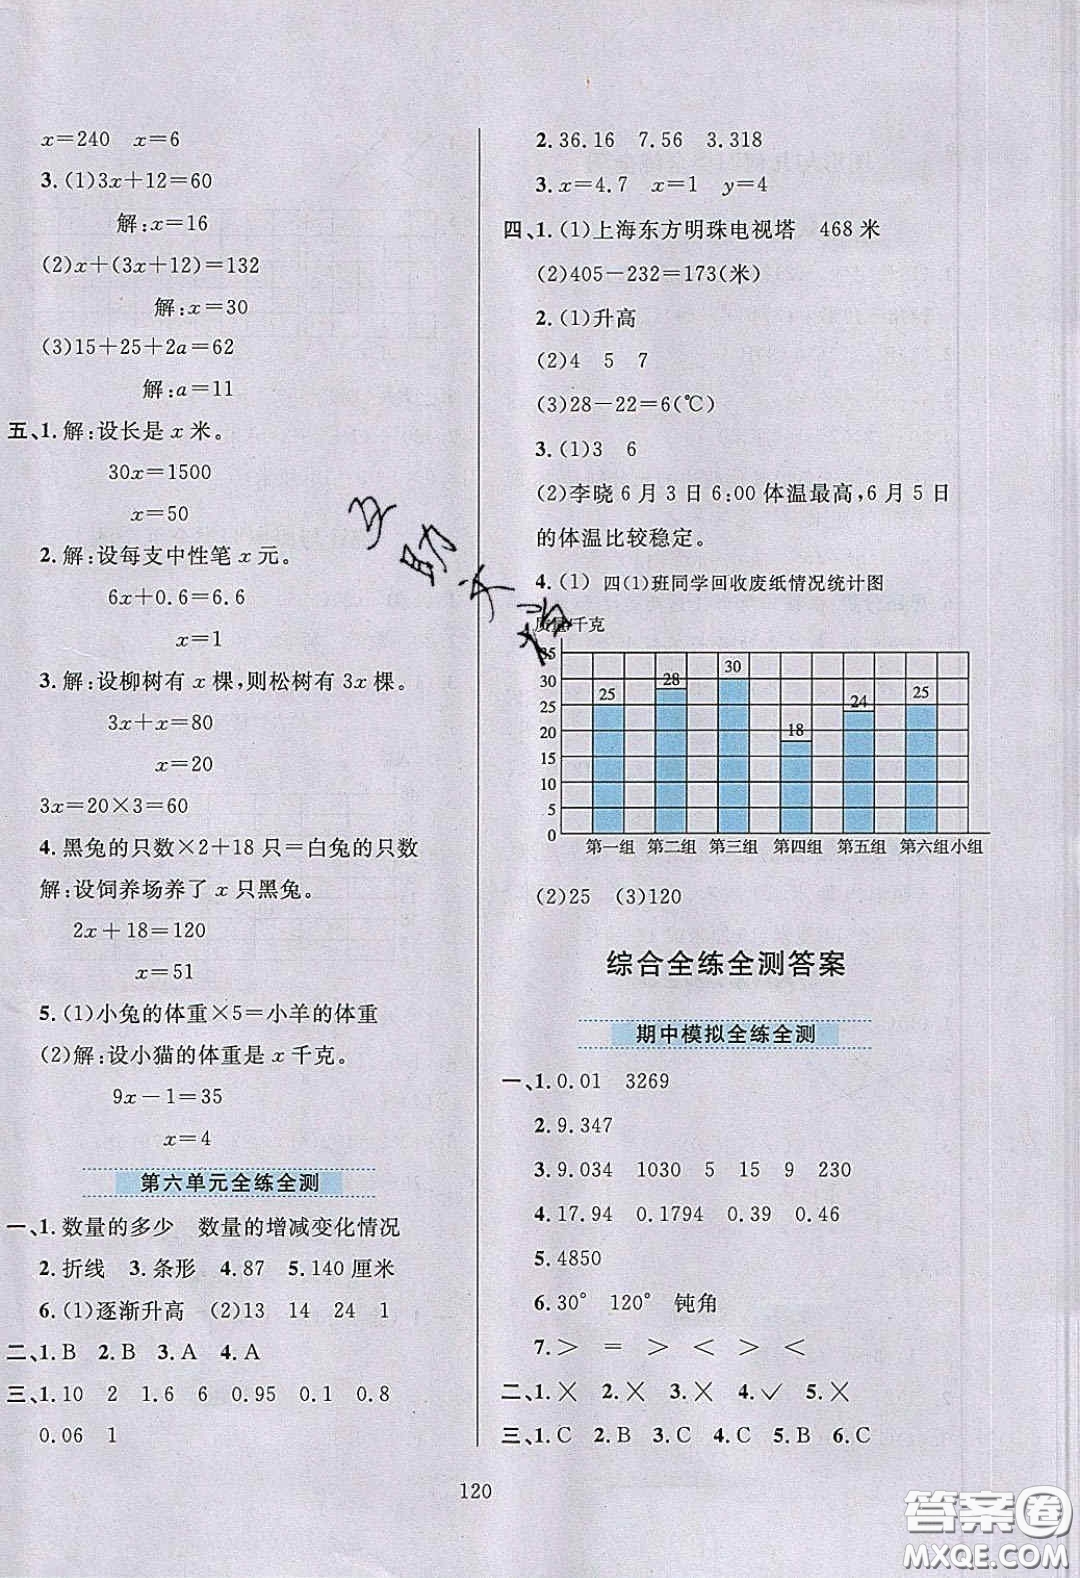 x=240 x=6
3.(1)3x+12=60
解:x=16
(2)x+(3x+12)=132
解:x=30
(3)15+25+2a=62
解:a=11
五、1.解:设长是 x 米。
30x=1500
x=50
2.解:设每支中性笔 x 元。
6x+0.6=6.6
x=1
3.解:设柳树有 x 棵,则松树有 3x 棵。
3x+x=80
x=20
3x=20×3=60
4.黑兔的只数×2+18 只=白兔的只数
解:设饲养场养了 x 只黑兔。
2x+18=120
x=51
5.(1)小兔的体重×5=小羊的体重
(2)解:设小猫的体重是 x 千克。
9x-1=35
x=4
第六单元全练全测
一、1.数量的多少 数量的增减变化情况
2.折线 3.条形 4.87 5.140 厘米
6.(1)逐渐升高 (2)13 14 24 1
二、1.B 2.B 3.A 4.A
三、1.10 2 1.6 6 0.95 0.1 0.8
0.06 1
2.36.16 7.56 3.318
3.x=4.7 x=1 y=4
四、1.(1)上海东方明珠电视塔 468 米
(2)405-232=173(米)
2.(1)升高
(2)4 5 7
(3)28-22=6(℃)
3.(1)3 6
(2)李晓 6 月 3 日 6:00 体温最高,6 月 5 日
的体温比较稳定。
4.(1) 四(1)班同学回收废纸情况统计图
质量/千克
35
30
25
20
15
10
5
0
25 28 30 18 24 25
第一组 第二组 第三组 第四组 第五组 第六组 小组
(2)25 (3)120
综合全练全测答案
期中模拟全练全测
一、1.0.01 3269
2.9.347
3.9.034 1030 5 15 9 230
4.17.94 0.1794 0.39 0.46
5.4850
6.30° 120° 钝角
7.> = > < > <
二、1.× 2.× 3.× 4.✓ 5.×
三、1.C 2.B 3.C 4.C 5.B 6.C
120
答案圈
MXQE.COM